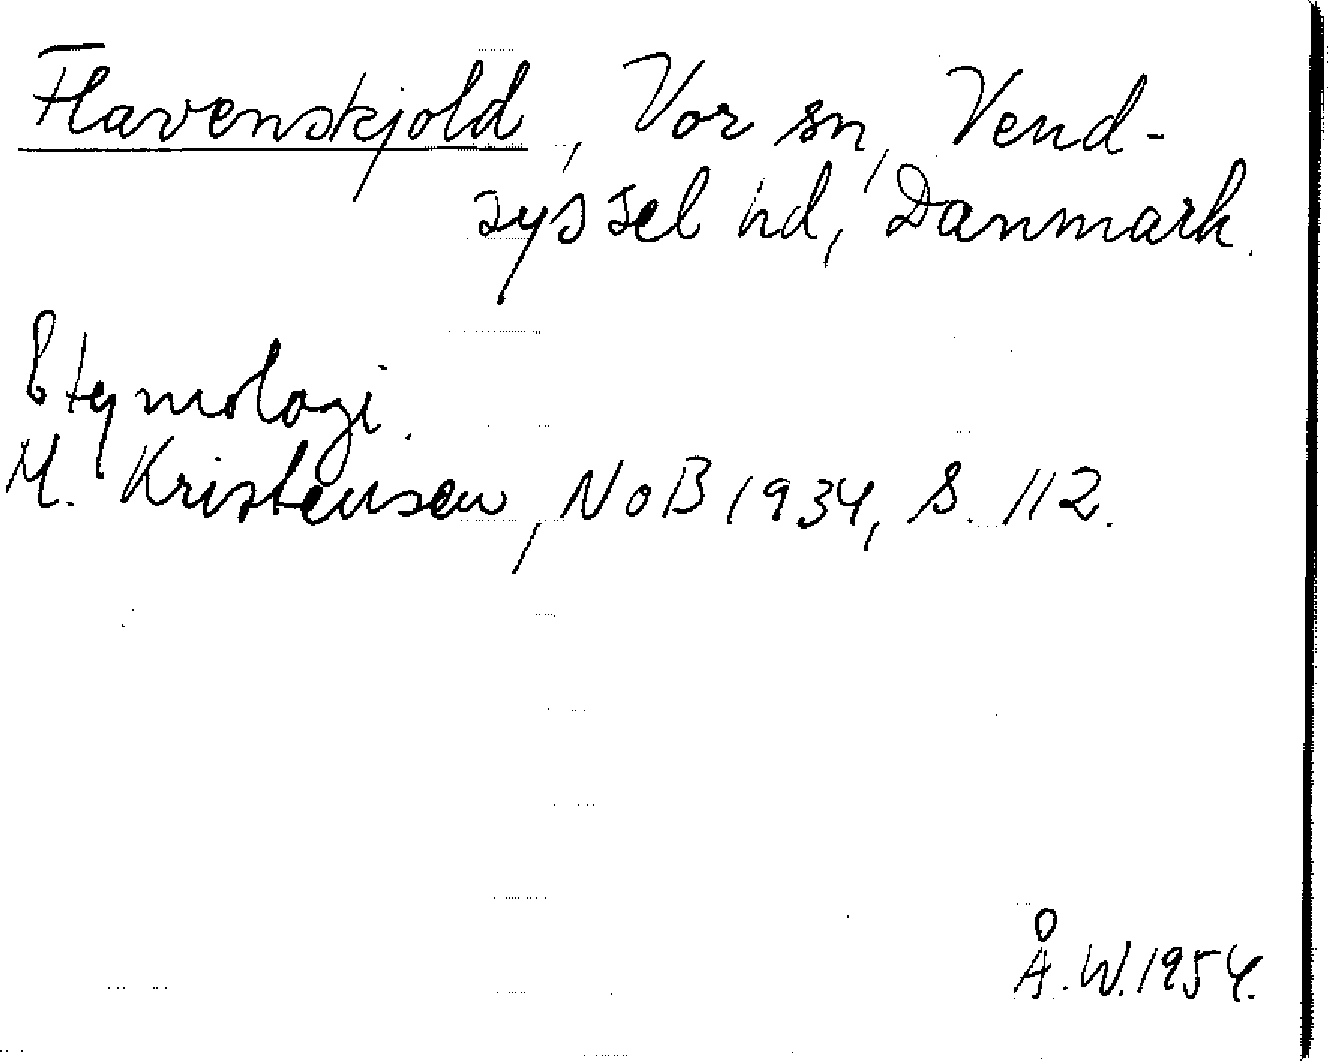 Flavenskjold, Vor sn, Vend-
syssel hd, Danmark.
Etymologi.
M. Kristensen, NoB 1934, S. 112.
Å.W. 1954.